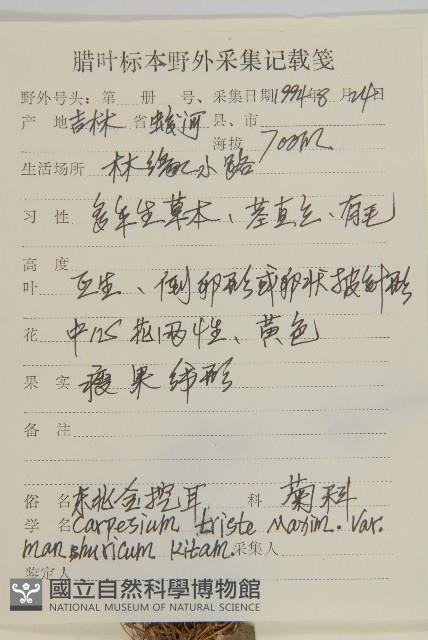 腊叶标本野外采集记载笺
野外号头：第 册 号、采集日期1994年8月24日
产地吉林省蛟河县、市
海拔700m
生活场所 林缘 小路
习性 多年生草本、茎直立、有毛
高度
叶 互生、倒卵形或卵状披针形
花 中 花两性、黄色
果实 瘦果线形
备注
俗名东北金挖耳 科 菊科
学名Carpesium triste Maxim. Var.
manshuricum Kitam. 采集人
鉴定人
國立自然科學博物館
NATIONAL MUSEUM OF NATURAL SCIENCE